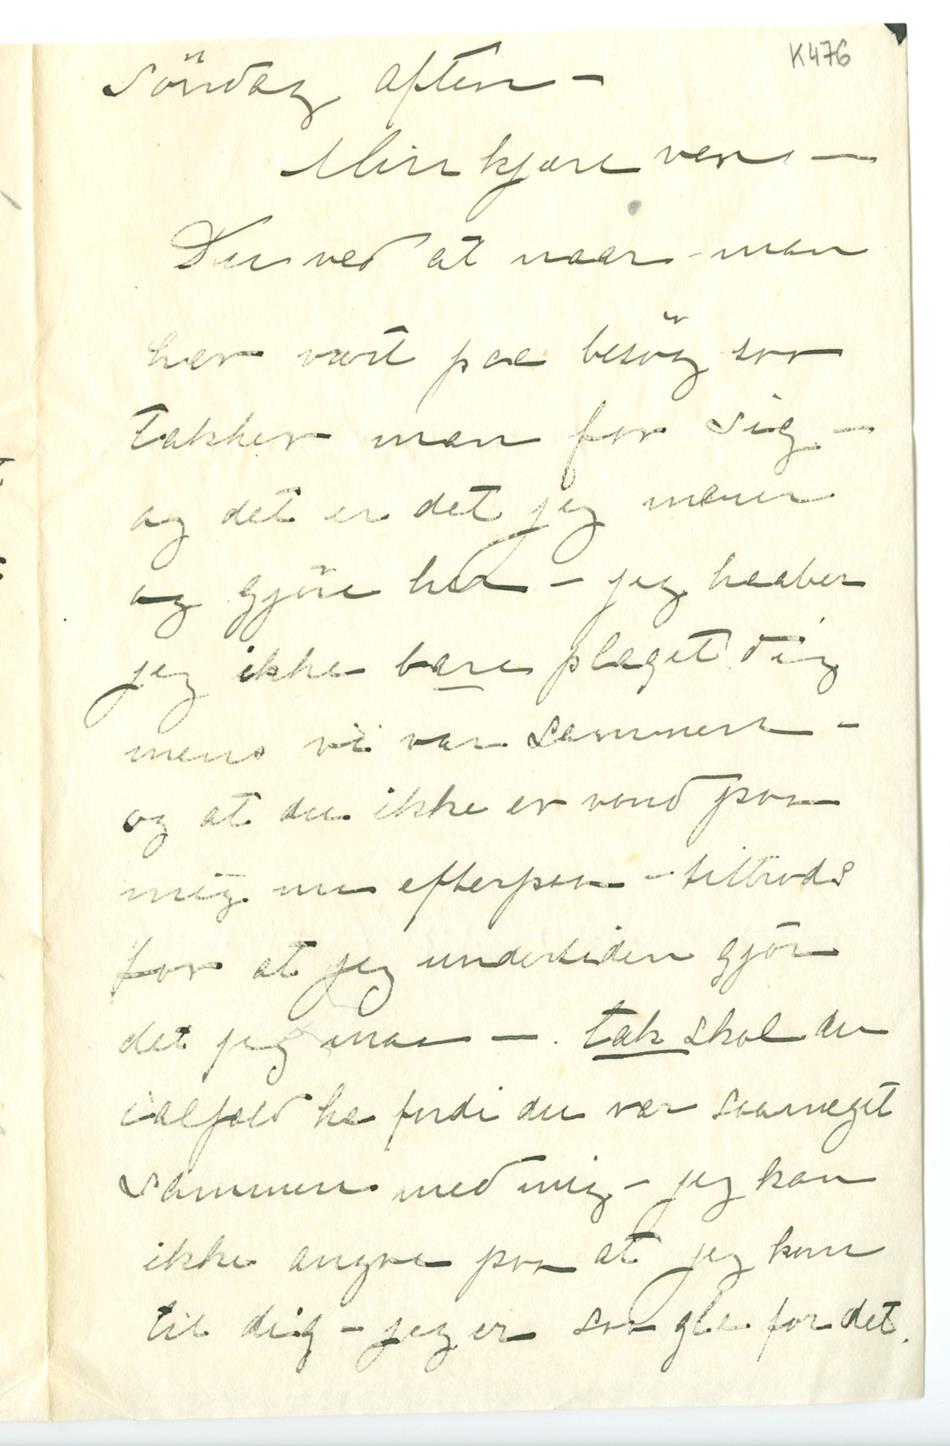 K476
Söndag aften –
Min kjære ven –
Du ved at naar man
har vært paa besög saa
takker man for sig –
og det er det jeg mener
og gjöre her – jeg haaber
jeg ikke bare plaget dig
mens vi var sammen –
og at du ikke er vond paa
mig nu efterpaa – tiltrods
for at jeg undertiden gjör
det jeg maa – tak skal du
ialfald ha fordi du var saameget
sammen med mig – jeg kan
ikke angre paa at jeg kom
til dig – jeg er saa gla for det.